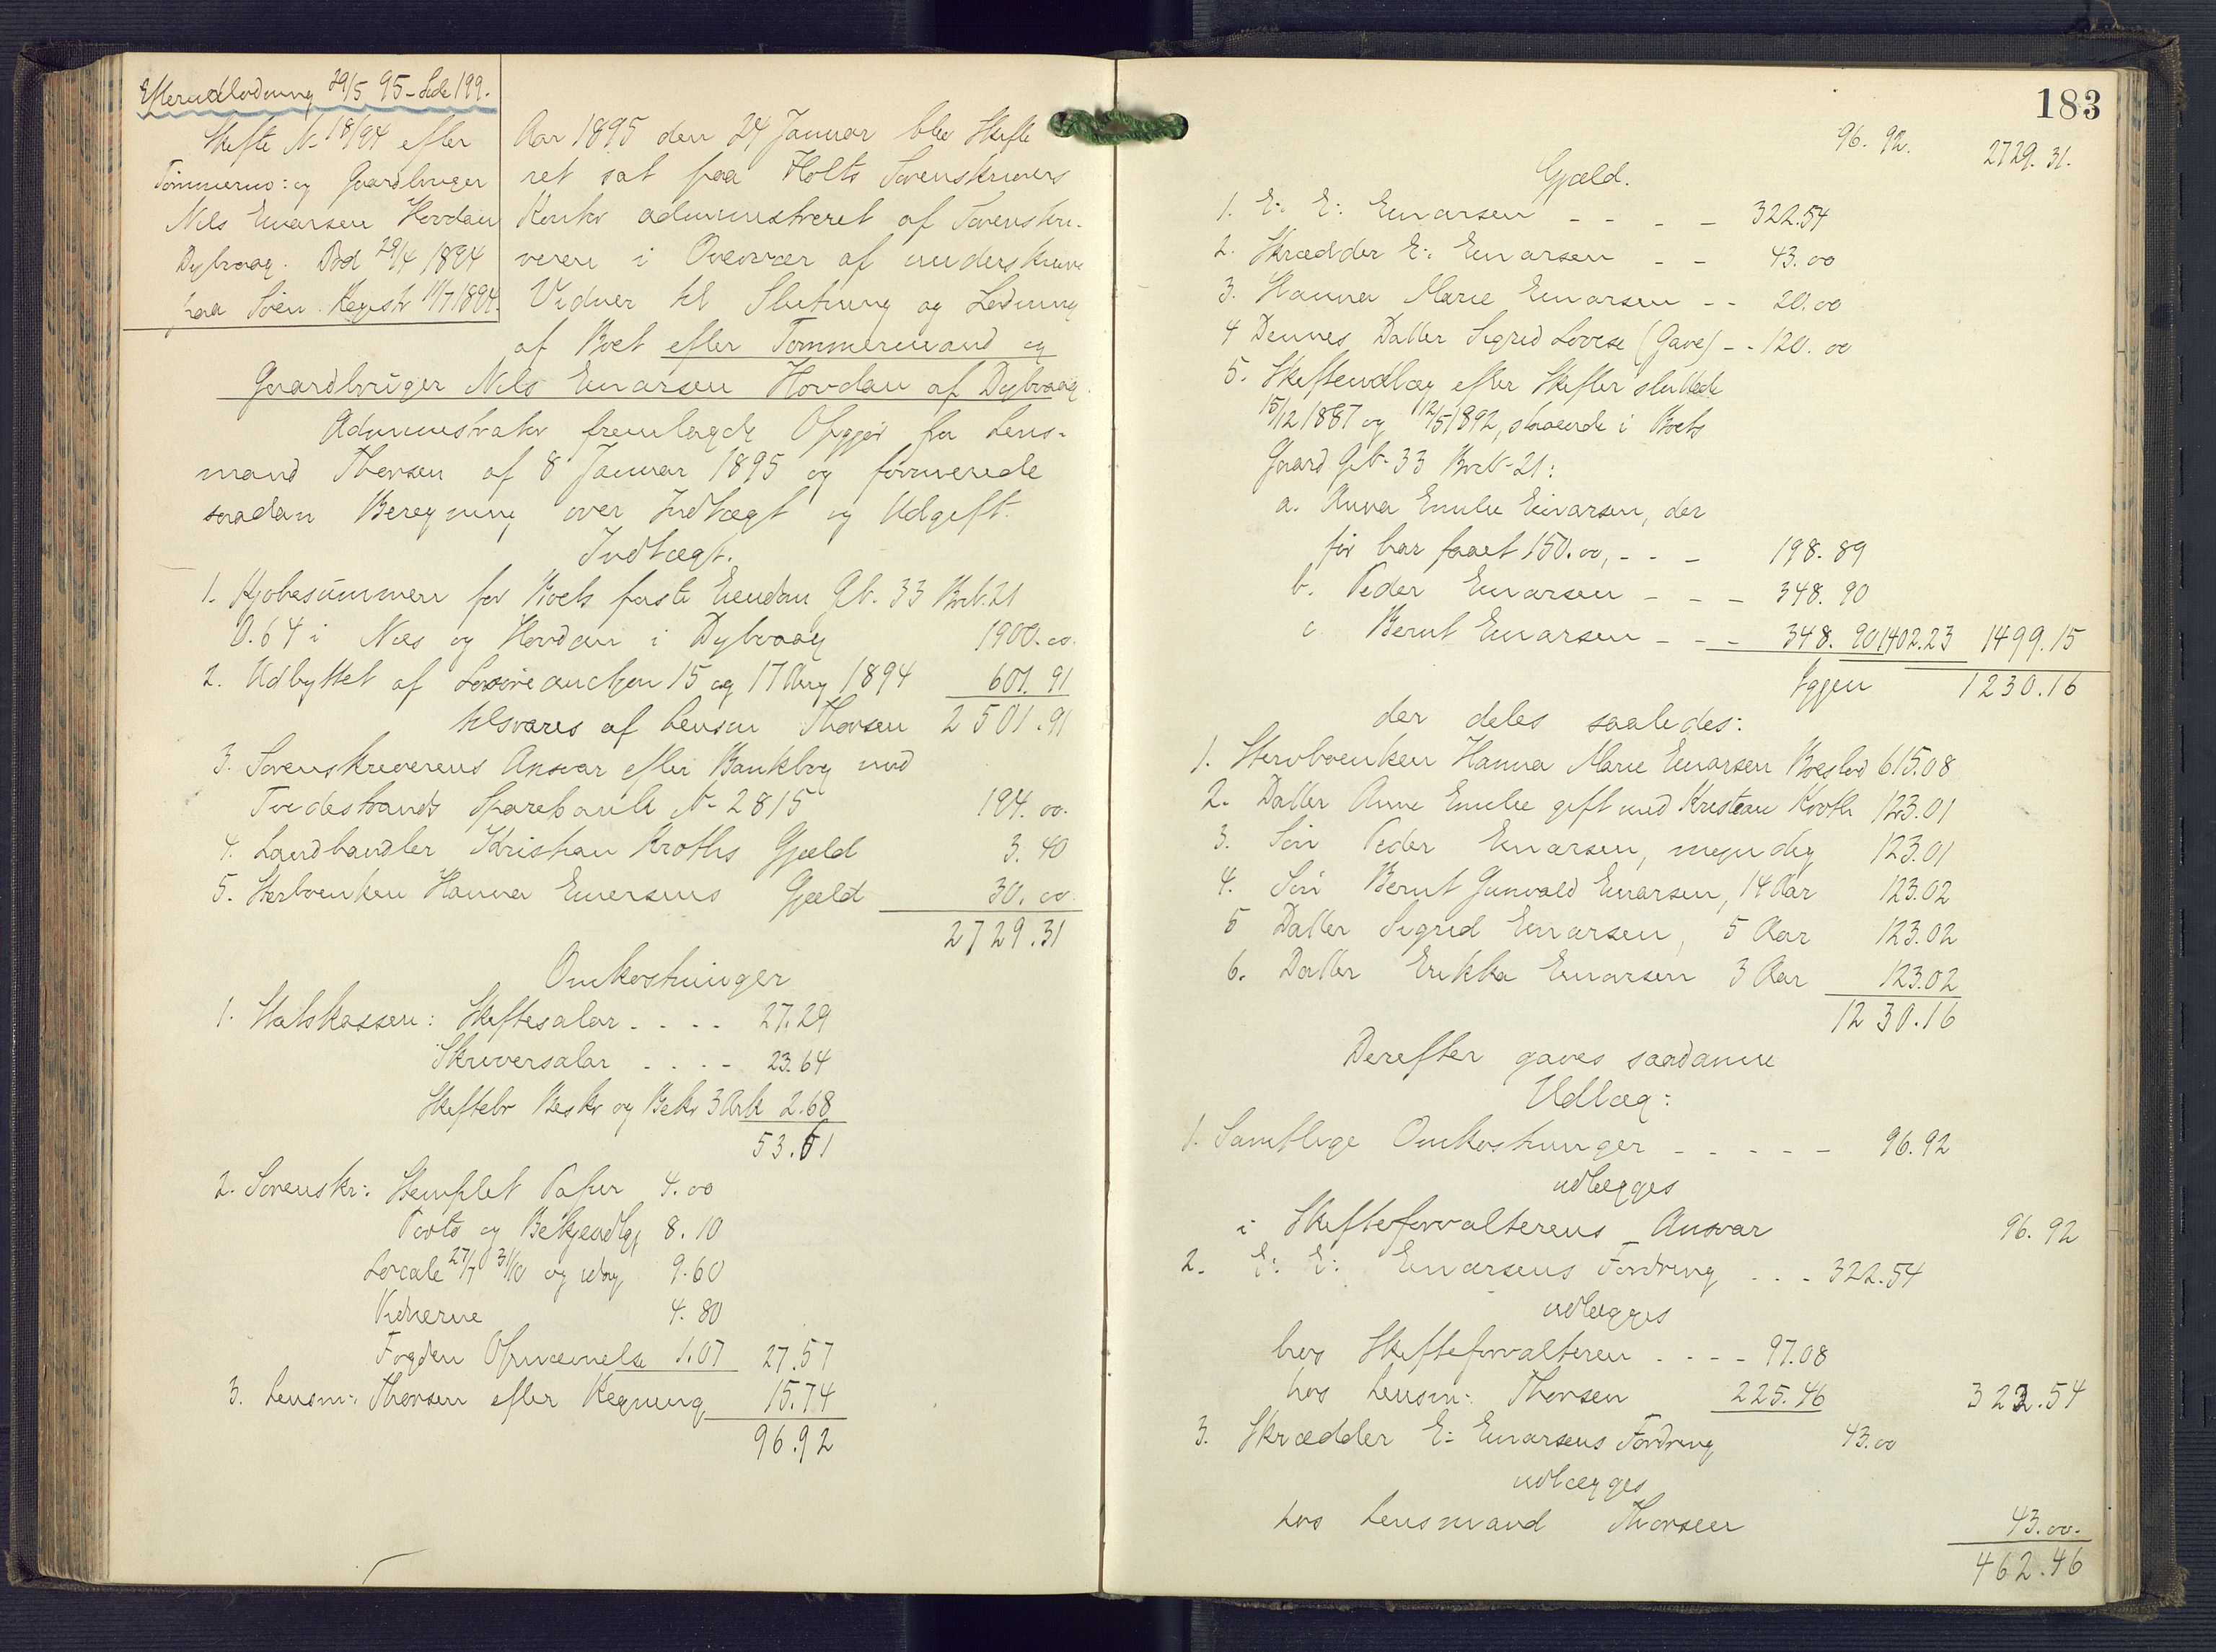 Efterudlodning 29/5 95 - Side 199.
Skifte No 18/94 efter
Tømmerm: og Gaardbruger
Nils Einarsen Hovdan
Dybvaag. Død 29/4 1894
paa Søen. Registr 11/7 1894.
Aar 1895 den 24 Januar blev Skifte
ret sat paa Holts Sorenskrivers
Kontor administreret af Sorenskri-
veren i Overvær af underskrevne
Vidner til Slutning og Lodning
af Boet efter Tømmermand og
Gaardbruger Nils Einarsen Hovdan af Dybvaag.
Administrator fremlagde Opgjør fra Lens-
mand Thorsen af 8 Januar 1895 og formerede
saadan Beregning over Indtægt og Udgift.
Indtægt.
1. Kjøbesummen for Boets faste Eiendom Gb. 33 Brb. 21
0.64 i Næs og Hovdan i Dybvaag 1900.00.
2. Udbyttet af Løsøreauction 15 og 17 Aug 1894 601.91
tilsvares af Lensm Thorsen 2501.91
3. Sorenskriverens Ansvar efter Bankbog med
Tvedestrands Sparebank No 2815 194.00.
4. Landhandler Kristian Kroths Gjæld 3.40
5. Sterboenken Hanna Einersens Gjæld 30.00
2729.31
Omkostninger
1. Statskassen: Skiftesalar. . . . 27.29
Skriversalar . . . - 23.64
Skiftebr Beskr og Bekr 3 Ark 2.68
53.61
2. Sorenskr: Stemplet Papir 4.00
Porto og Bekjendtgj 8.10
Locale 27/7 31/10 og idag 9.60
Vidnerne 4.80
Fogden Opnævnelse 1.07 27.57
3. Lensm: Thorsen efter Regning 15.74
96.92
183
96.92. 2729.31.
Gjæld.
1. E: E: Einarsen - - - - 322.54
2. Skrædder E: Einarsen - - 43.00
3. Hanna Marie Einarsen - - 20.00
4 Dennes Datter Sigrid Lovise (Gave) - - 120.00
5. Skifteudlæg efter Skifter sluttede
15/12 1887 og 12/5 1892, staaende i Boets
Gaard Gb. 33 Brb. 21:
a. Anna Emilie Einarsen, der
før har faaet 150.00, - - - 198.89
b. Peder Einarsen - - - 348.90
c. Bernt Einarsen - - - 348.90 1402.23 1499.15
Igjen 1230.16
der deles saaledes:
1. Sterboenken Hanna Marie Einarsen Boeslod 615.08
2. Datter Anne Emilie gift med Kristian Kroth 123.01
3. Søn Peder Einarsen, myndig 123.01
4. Søn Bernt Gunvald Einarsen, 14 Aar 123.02
5 Datter Sigrid Einarsen, 5 Aar 123.02
6. Datter Erikka Einarsen 3 Aar 123.02
1230.16
Derefter gaves saadanne
Udlæg:
1. Samtlige Omkostninger - - - - - 96.92
udlægges
i Skifteforvalterens Ansvar 96.92
2. E: E: Einarsens Fordring . . . 322.54
udlægges
hos Skifteforvalteren . - - - 97.08
hos Lensm: Thorsen 225.46 322.54
3. Skrædder E: Einarsens Fordring 43.00
udlægges
hos Lensmand Thorsen 43.00.
462.46